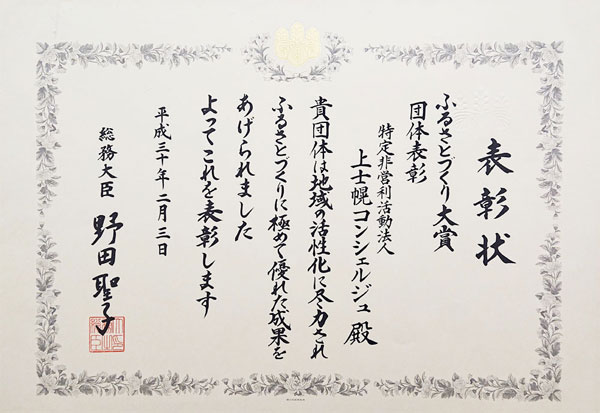 表彰状
ふるさとづくり大賞
団体表彰
特定非営利活動法人
上士幌コンシェルジュ 殿
貴団体は地域の活性化に尽力され
ふるさとづくりに極めて優れた成果を
あげられました
よってこれを表彰します
平成三十年二月三日
総務大臣 野田聖子